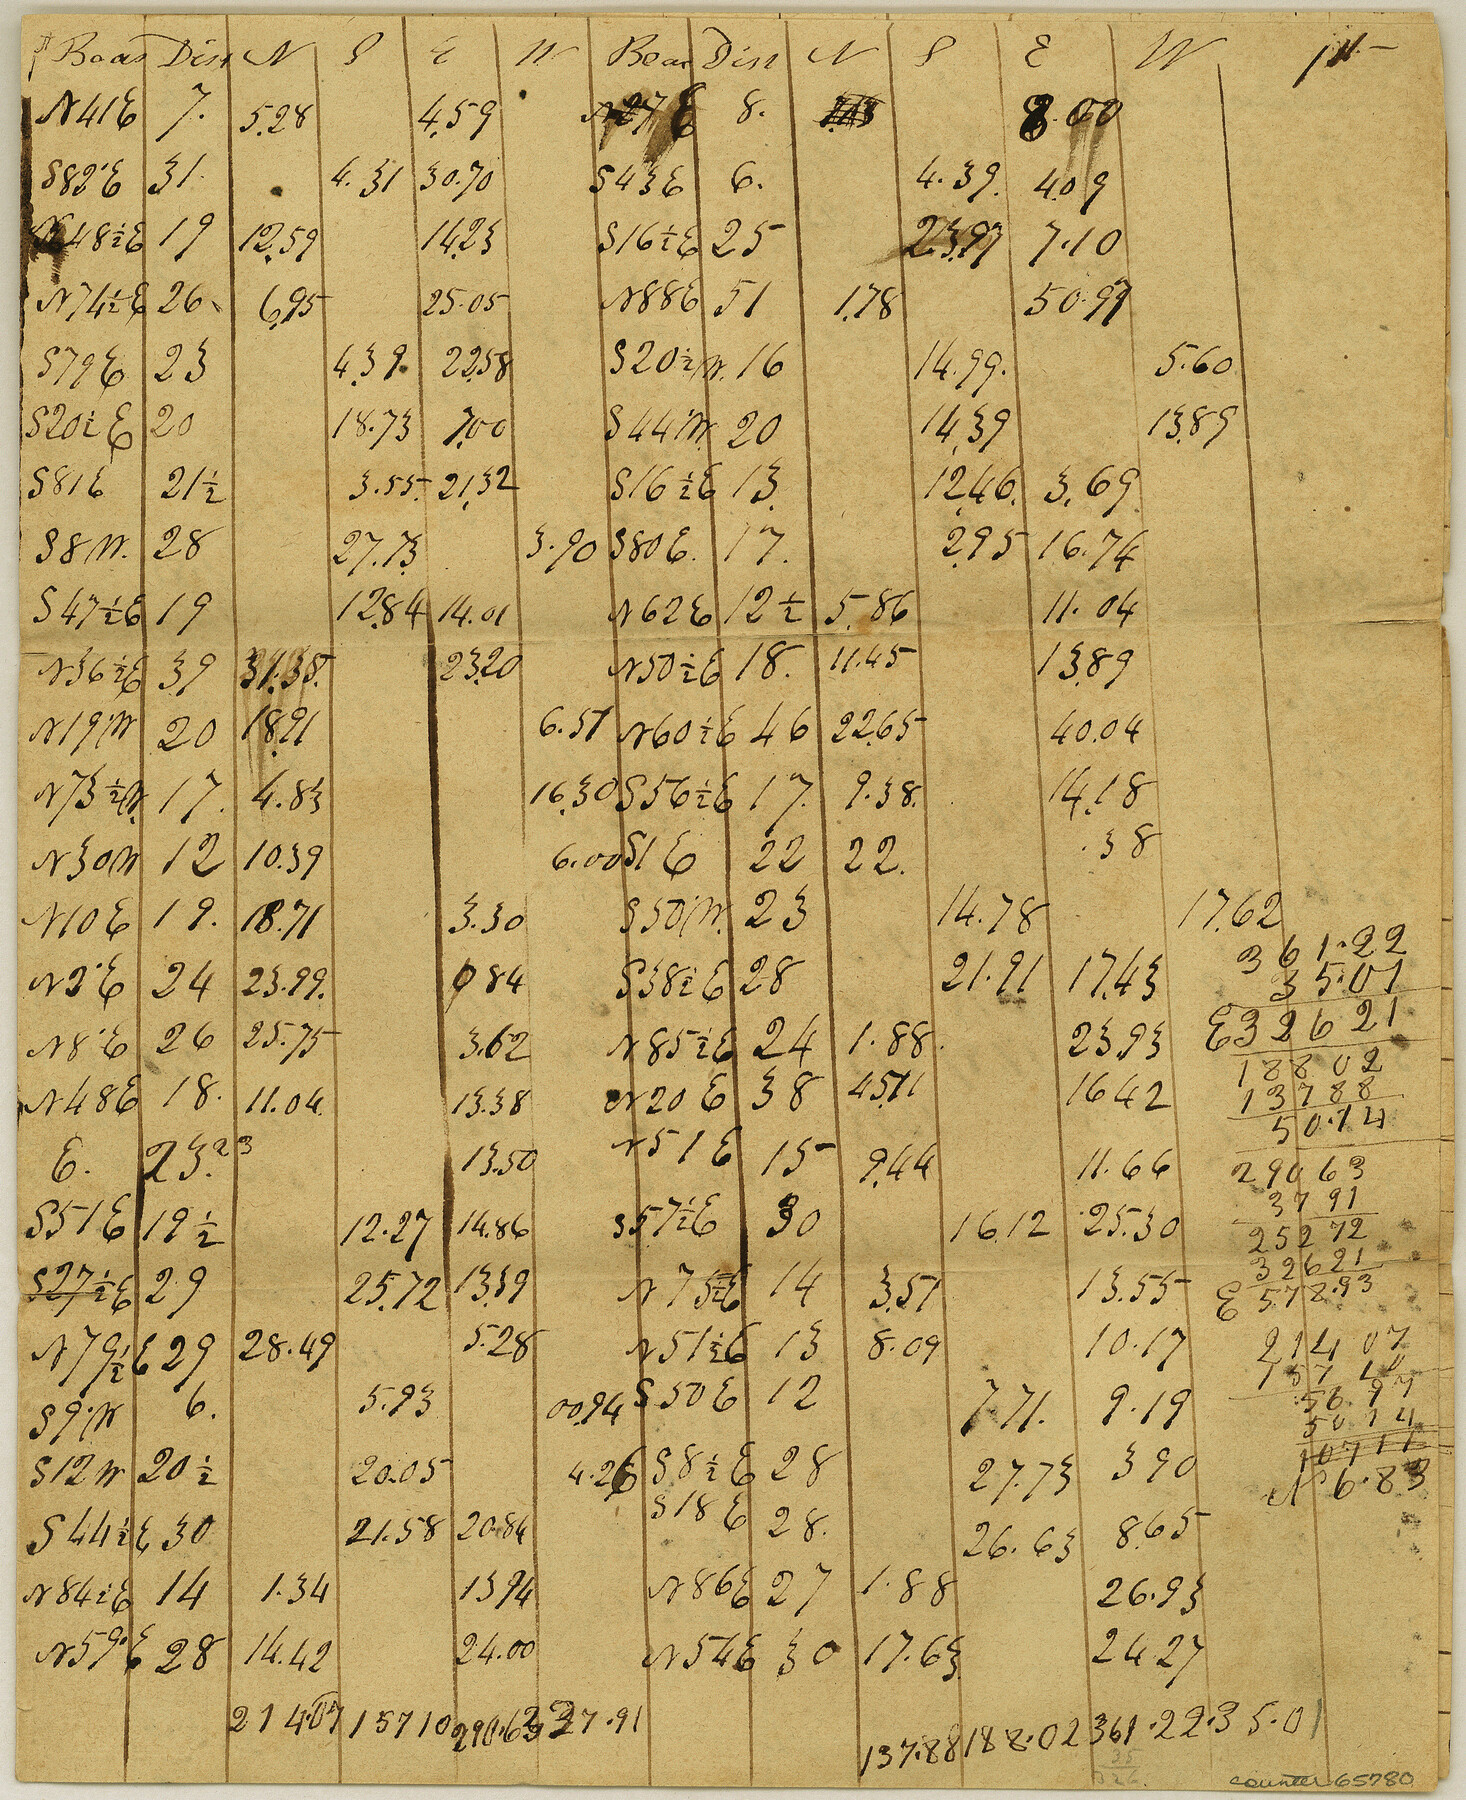 Bear Dist N S E W Bear Dist N S E W
N41E 7. 5.28 4.59 N27E 8. 8.00
S82°E 31. 4.31 30.70 S43E 6. 4.39. 4.09
N48½E 19 12.59 14.23 S16½E 25 23.97 7.10
N74½E 26 6.95 25.05 N88E 51 1.78 50.97
S79E 23 4.39 22.58 S20½W. 16 14.99. 5.60
S20½E 20 18.73 7.00 S44W. 20 14.39 13.89
S81E 21½ 3.55. 21.32 S16½E 13. 12.46. 3.69
S8W. 28 27.73 3.90 S80E. 17. 2.95 16.74
S47½E 19 12.84 14.01 N62E 12½ 5.86 11.04
N36½E 39 31.35. 23.20 N50½E 18. 11.45 13.89
N19W 20 18.91 6.51 N60½E 46 22.65 40.04
N73½W. 17. 4.83 16.30 S56½E 17. 9.38. 14.18
N30W 12 10.39 6.00 S1E 22 22. .38
N10E 19. 18.71 3.30 S50W. 23 14.78 17.62
N2°E 24 23.99. 0 84 S38½E 28 21.91 17.43
N8°E 26 25.75 3.62 N85½E 24 1.88. 23.93
N48E 18. 11.04. 13.38 N20E 38 45.11 16 42
E. 23. 23 13.50 N51E 15 9.44 11.66
S51E 19½ 12.27 14.86 S57½E 30 16.12 25.30
S27½E 29 25.72 13.39 N75½E 14 3.51 13.55
N79½E 29 28.49 5.28 N51½E 13 8.09 10.17
S9W 6. 5.93 00.94 S50E 12 7 71. 9.19
S12W 20½ 20.05 4.26 S8½E 28 27.73 3 90
S44½E 30 21.58 20.84 S18E 28. 26.63 8.65
N84½E 14 1.34 13 94 N86E 27 1.88 26.93
N59°E 28 14.42 24.00 N54E 30 17.63 24.27
214.07 157 10 290.63 37.91 137.88 188.02 361.22 35.01
361.22
35.01
E 326 21
188 02
137 88
50.14
290 63
37 91
252 72
326 21
E 578.93
214 07
157 10
56 97
50 14
107 11
N 6.83
counter 65780